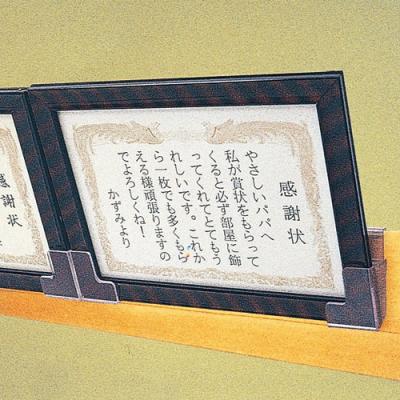 感謝状
やさしいパパへ
私が賞状をもらって
くると必ず部屋に飾
ってくれてとてもう
れしいです。これか
ら一枚でも多くもら
える様頑張りますの
でよろしくね！
かずみより
感謝状